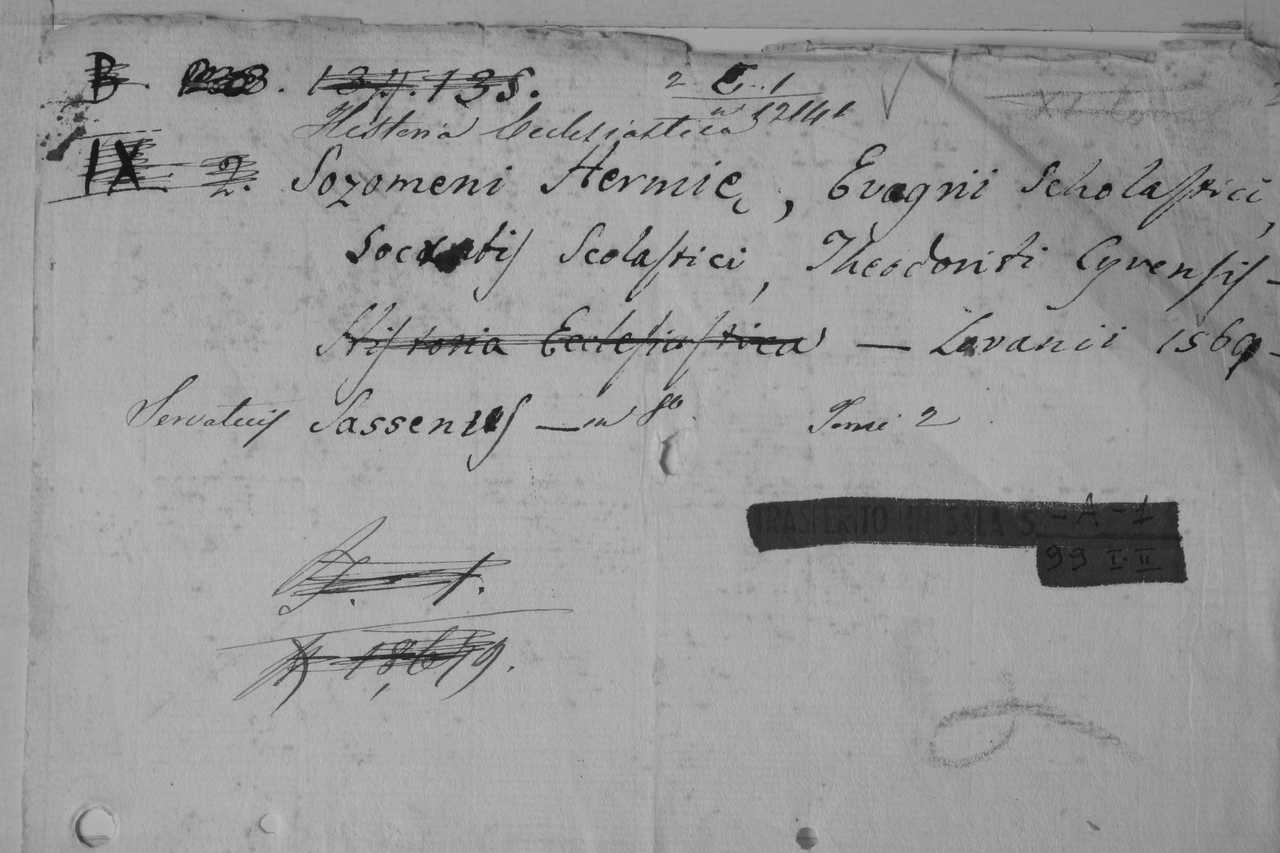 B. 134.135. 2 E..1
Historia Ecclesiastica in 12141
IX 2. Sozomeni Hermię, Evagrii Scholastici,
Socratis Scolastici, Theodoriti Cyrensis -
Historia Ecclesiastica - Lovanii 1569 -
Servatius Sassenius - in 8o. Tomi 2
TRASFERITO IN SALA S - A - 1
99 I-II
1.
18,679.